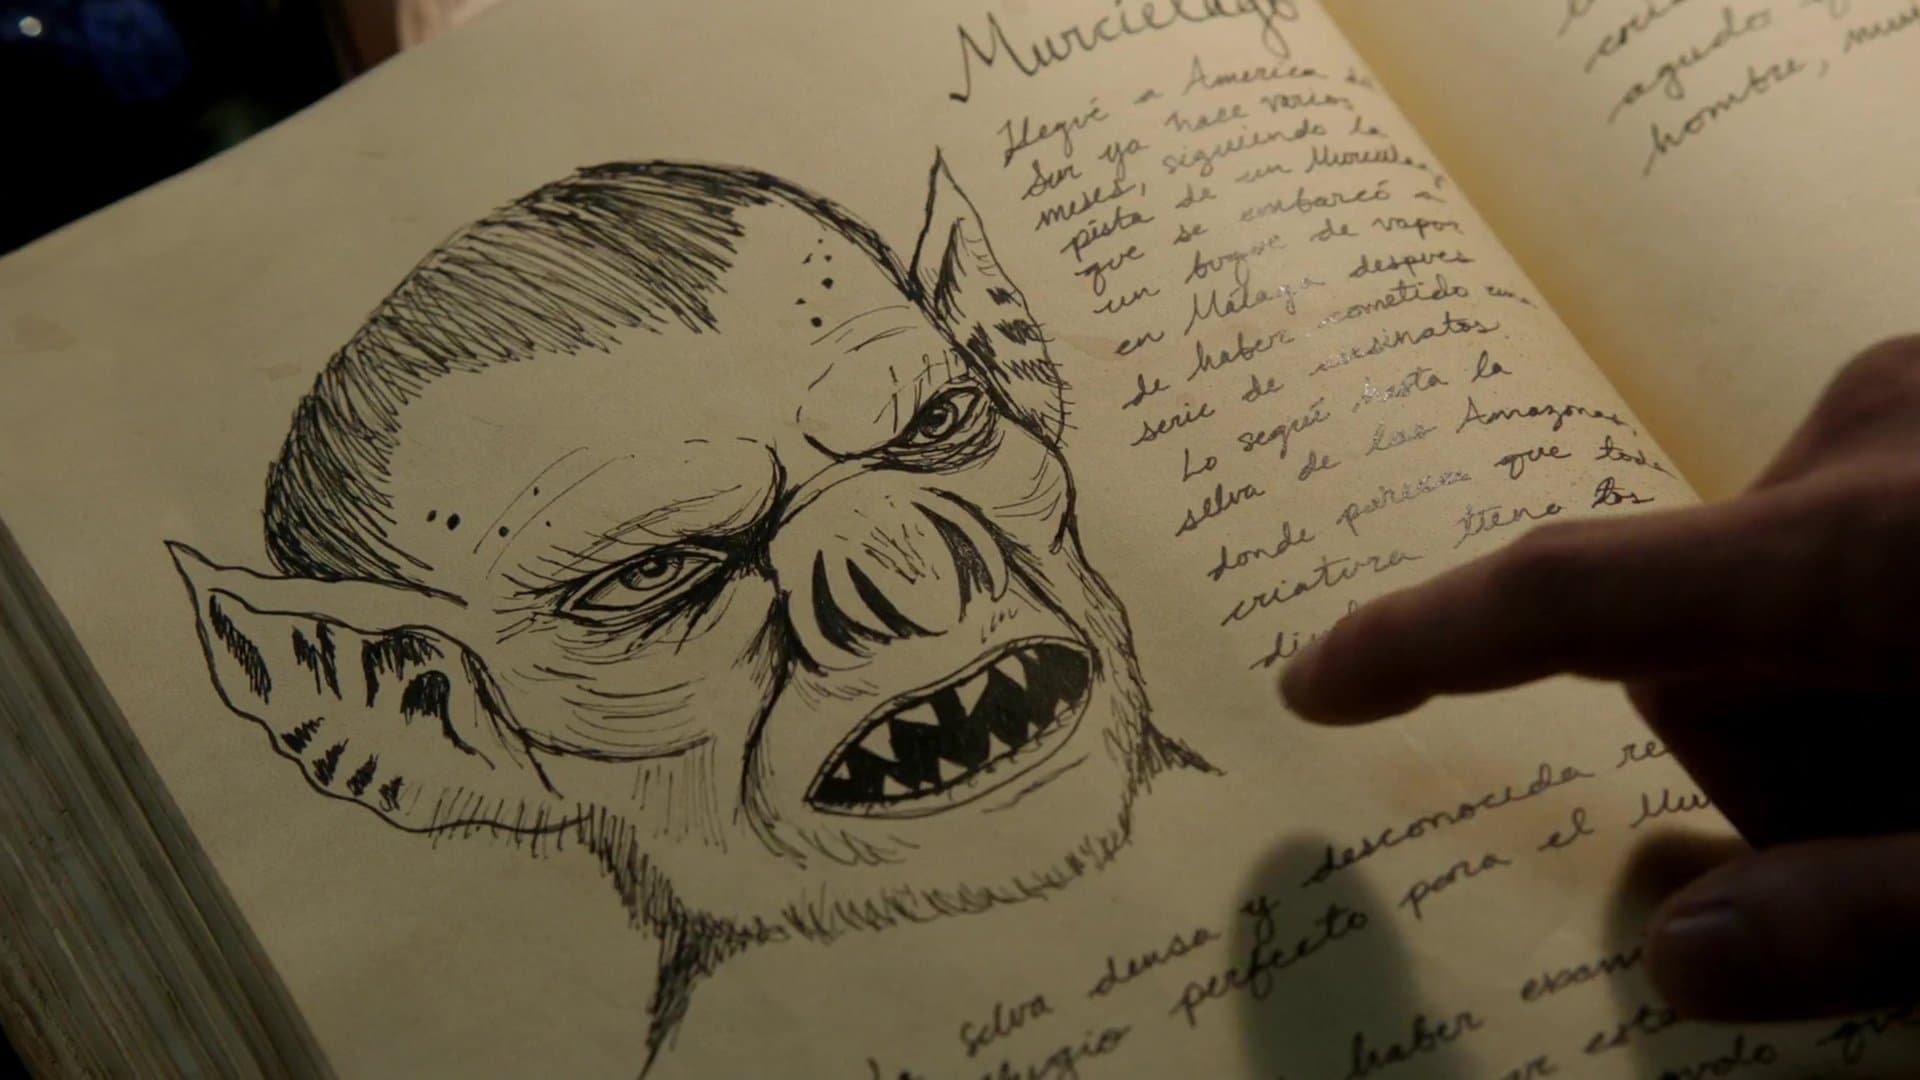 Murciélago
Llegué a America
Sur ya hace varios
meses, siguiendo la
pista de un Murciela
que se embarcó a
un buque de vapor
en Málaga despues
de haber cometido una
serie de asesinatos.
Lo seguí hasta la
selva de las Amazonas,
donde parece que toda
criatura tiene los
di
selva densa y desconocida re
refugio perfecto para el Mur
haber exam
este
que
agudo y
hombre, mu